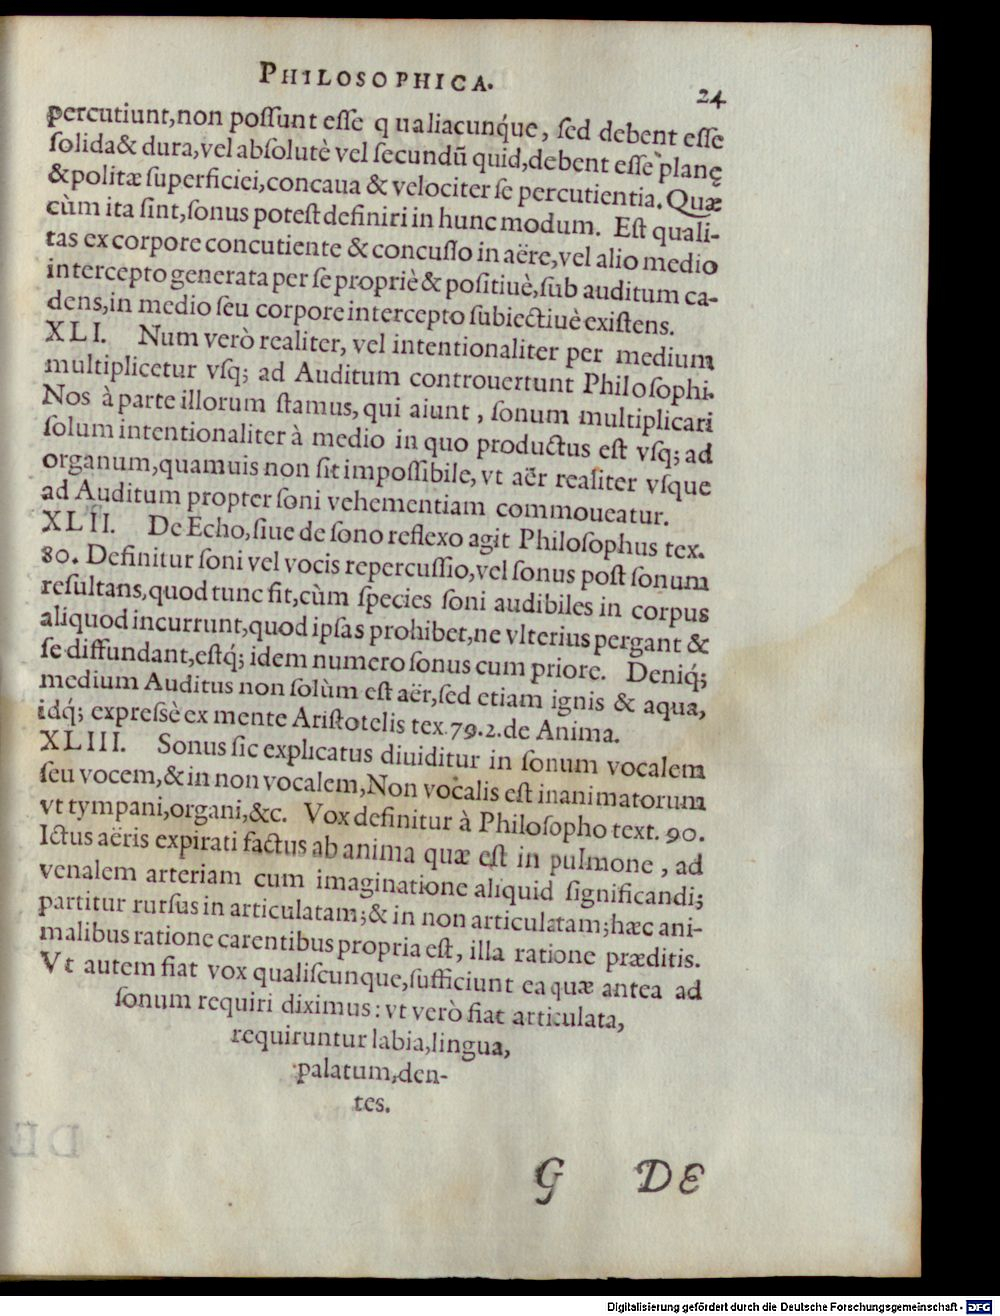 PHILOSOPHICA.
24
percutiunt,non poſſunt eſſe q ualiacunq́ue, ſed debent eſſe
ſolida& dura,vel abſolutè vel ſecundũ quid,debent eſſe planę
&politæ ſuperficiei,concaua & velociter ſe percutientia. Quæ
cùm ita ſint,ſonus poteſt definiri in hunc modum. Eſt quali-
tas ex corpore concutiente & concuſſo in aëre,vel alio medio
intercepto generata per ſe propriè & poſitiuè,ſub auditum ca-
dens,in medio ſeu corpore intercepto ſubiectiuè exiſtens.
XLI. Num verò realiter, vel intentionaliter per medium
multiplicetur vſq; ad Auditum controuertunt Philoſophi.
Nos à parte illorum ſtamus, qui aiunt , ſonum multiplicari
ſolum intentionaliter à medio in quo productus eſt vſq; ad
organum,quamuis non ſit impoſſibile, vt aër realiter vſque
ad Auditum propter ſoni vehementiam commoueatur.
XLII. De Echo,ſiue de ſono reflexo agit Philoſophus tex.
80. Definitur ſoni vel vocis repercuſſio,vel ſonus poſt ſonum
reſultans,quod tunc fit,cùm ſpecies ſoni audibiles in corpus
aliquod incurrunt,quod ipſas prohibet,ne vlterius pergant &
ſe diffundant,eſtq́; idem numero ſonus cum priore. Deniq́;
medium Auditus non ſolùm eſt aër,ſed etiam ignis & aqua,
idq́; expreſsè ex mente Ariſtotelis tex.79.2.de Anima.
XLIII. Sonus ſic explicatus diuiditur in ſonum vocalem
ſeu vocem,& in non vocalem,Non vocalis eſt inanimatorum
vt tympani,organi,&c. Vox definitur à Philoſopho text. 90.
Ictus aëris expirati factus ab anima quæ eſt in pulmone , ad
venalem arteriam cum imaginatione aliquid ſignificandi;
partitur rurſus in articulatam;& in non articulatam;hæc ani-
malibus ratione carentibus propria eſt, illa ratione præditis.
Vt autem fiat vox qualiſcunque,ſufficiunt ea quæ antea ad
ſonum requiri diximus: vt verò fiat articulata,
requiruntur labia,lingua,
palatum,den-
tes.
G DE
Digitalisierung gefördert durch die Deutsche Forschungsgemeinschaft - DFG